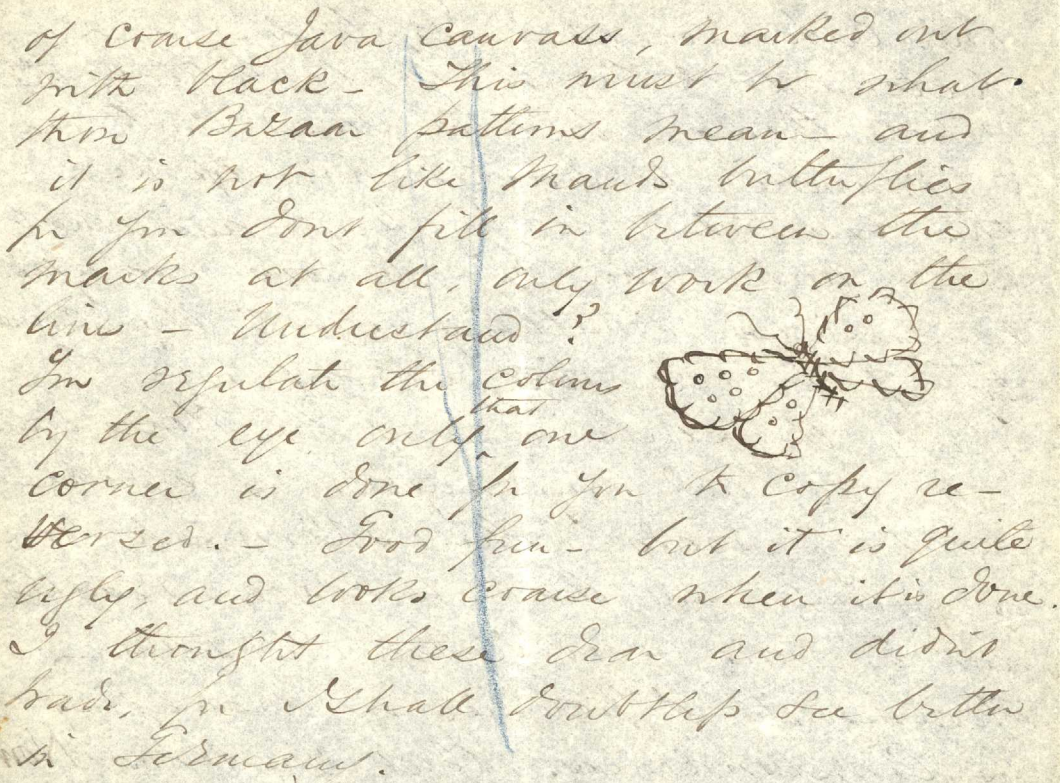 of coarse Java canvass, marked out
with black - This must be what
thon Bazaar patterns mean - and
it is not like Mauds butterflies
for you dont fill in between the
marks at all, only work on the
line - Understand?
You regulate the colours
by the eye only, that one
corner is done for you to copy re-
versed. - Good fun - but it is quite
ugly, and looks coarse when it is done.
I thought these dear and didn't
trade, for I shall doubtless see better
in Germany.